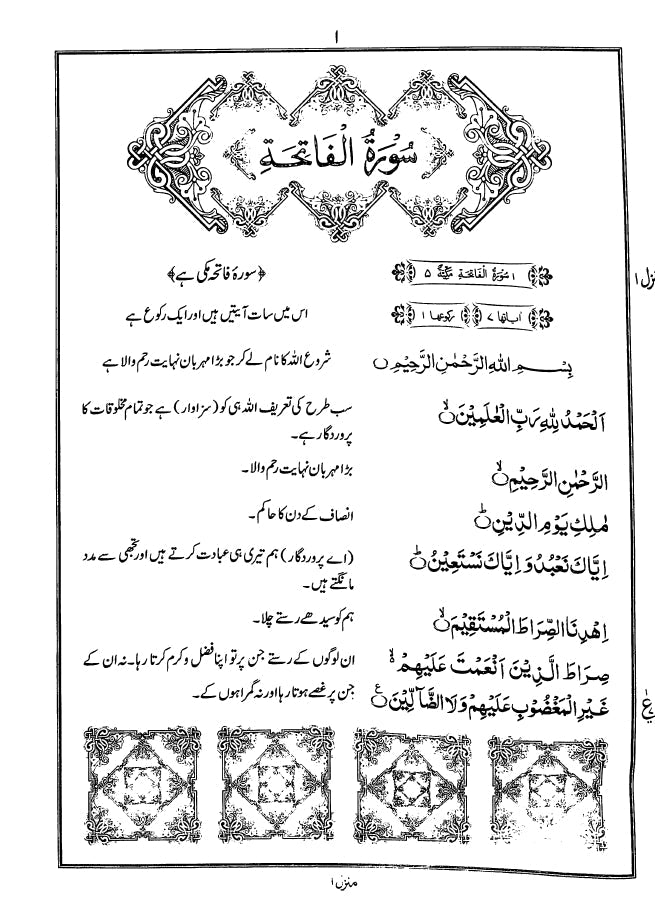 ۱
سُوْرَةُ الْفَاتِحَةِ
۱ سُوْرَةُ الْفَاتِحَةِ مَکِّیَّةٌ ۵
﴿سورۂ فاتحہ مکی ہے﴾
منزل ۱
اٰیاتها ۷ رکوعها ۱
اس میں سات آیتیں ہیں اور ایک رکوع ہے
بِسْمِ اللهِ الرَّحْمٰنِ الرَّحِیْمِ ○
شروع اللہ کا نام لے کر جو بڑا مہربان نہایت رحم والا ہے
اَلْحَمْدُ لِلّٰهِ رَبِّ الْعٰلَمِیْنَ ○ۙ
سب طرح کی تعریف اللہ ہی کو (سزاوار) ہے جو تمام مخلوقات کا
پروردگار ہے۔
الرَّحْمٰنِ الرَّحِیْمِ ○ۙ
بڑا مہربان نہایت رحم والا۔
مٰلِكِ یَوْمِ الدِّیْنِ ○ؕ
انصاف کے دن کا حاکم۔
اِیَّاكَ نَعْبُدُ وَ اِیَّاكَ نَسْتَعِیْنُ ○ؕ
(اے پروردگار) ہم تیری ہی عبادت کرتے ہیں اور تجھی سے مدد
مانگتے ہیں۔
اِهْدِنَا الصِّرَاطَ الْمُسْتَقِیْمَ ○ۙ
ہم کو سیدھے رستے چلا۔
صِرَاطَ الَّذِیْنَ اَنْعَمْتَ عَلَیْهِمْ ۙ۬
ان لوگوں کے رستے جن پر تو اپنا فضل و کرم کرتا رہا۔ نہ ان کے
غَیْرِ الْمَغْضُوْبِ عَلَیْهِمْ وَلَا الضَّآلِّیْنَ ○ع
جن پر غصے ہوتا رہا اور نہ گمراہوں کے۔
منزل ۱